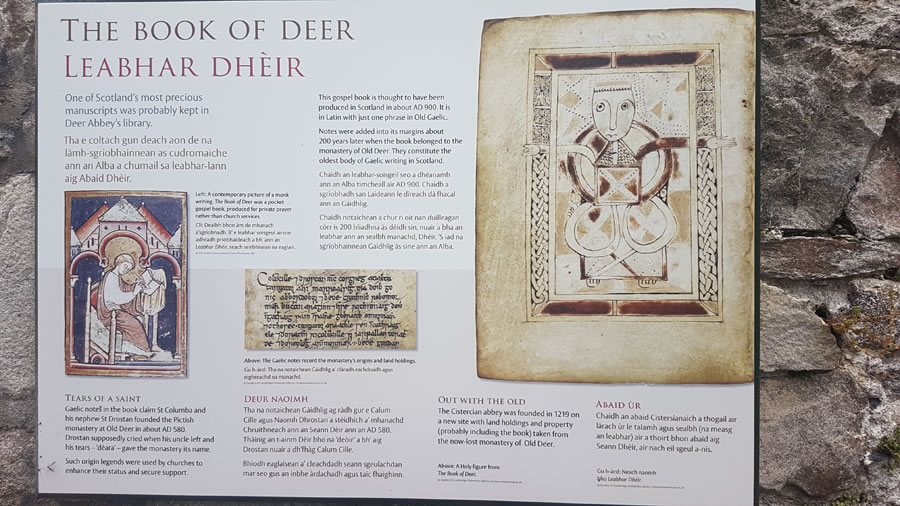 THE BOOK OF DEER
LEABHAR DHÈIR
One of Scotland's most precious
manuscripts was probably kept in
Deer Abbey's library.
Tha e coltach gun deach aon de na
làmh-sgrìobhainnean as cudromaiche
ann an Alba a chumail sa leabhar-lann
aig Abaid Dhèir.
This gospel book is thought to have been
produced in Scotland in about AD 900. It is
in Latin with just one phrase in Old Gaelic.
Notes were added into its margins about
200 years later when the book belonged to the
monastery of Old Deer. They constitute the
oldest body of Gaelic writing in Scotland.
Chaidh an leabhar-soisgeil seo a dhèanamh
ann an Alba timcheall air AD 900. Chaidh a
sgrìobhadh san Laideann le dìreach dà fhacal
ann an Gàidhlig.
Chaidh notaichean a chur ri oir nan duilleagan
còrr is 200 bliadhna às dèidh sin, nuair a bha an
leabhar ann an sealbh manachd, Dhèir. 'S iad na
sgrìobhainnean Gàidhlig as sine ann an Alba.
Left: A contemporary picture of a monk
writing. The Book of Deer was a pocket
gospel book, produced for private prayer
rather than church services.
Clì: Dealbh bhon àm de mhanach
a' sgrìobhadh. B' e leabhar soisgeul airson
adhradh prìobhaideach a bh' ann an
Leabhar Dhèir, seach seirbheisean na eaglais.
Above: The Gaelic notes record the monastery's origins and land holdings.
Gu h-àrd: Tha na notaichean Gàidhlig a' clàradh eachdraidh agus
oighreachd na manachd.
TEARS OF A SAINT
Gaelic notes in the book claim St Columba and
his nephew St Drostan founded the Pictish
monastery at Old Deer in about AD 580.
Drostan supposedly cried when his uncle left and
his tears – 'dèara' – gave the monastery its name.
Such origin legends were used by churches to
enhance their status and secure support.
DEUR NAOIMH
Tha na notaichean Gàidhlig ag ràdh gur e Calum
Cille agus Naomh Dhrostan a stèidhich a' mhanachd
Chruithneach ann an Seann Dèir ann an AD 580.
Thàinig an t-ainm Dèir bho na 'deòir' a bh' aig
Drostan nuair a dh'fhàg Calum Cille.
Bhiodh eaglaisean a' cleachdadh seann sgeulachdan
mar seo gus an inbhe àrdachadh agus taic fhaighinn.
OUT WITH THE OLD
The Cistercian abbey was founded in 1219 on
a new site with land holdings and property
(probably including the book) taken from
the now-lost monastery of Old Deer.
Above: A Holy figure from
The Book of Deer.
ABAID ÙR
Chaidh an abaid Cistersianaich a thogail air
làrach ùr le talamh agus sealbh (na measg
an leabhar) air a thoirt bhon abaid aig
Seann Dhèir, air nach eil sgeul a-nis.
Gu h-àrd: Neach naomh
bho Leabhar Dhèir.